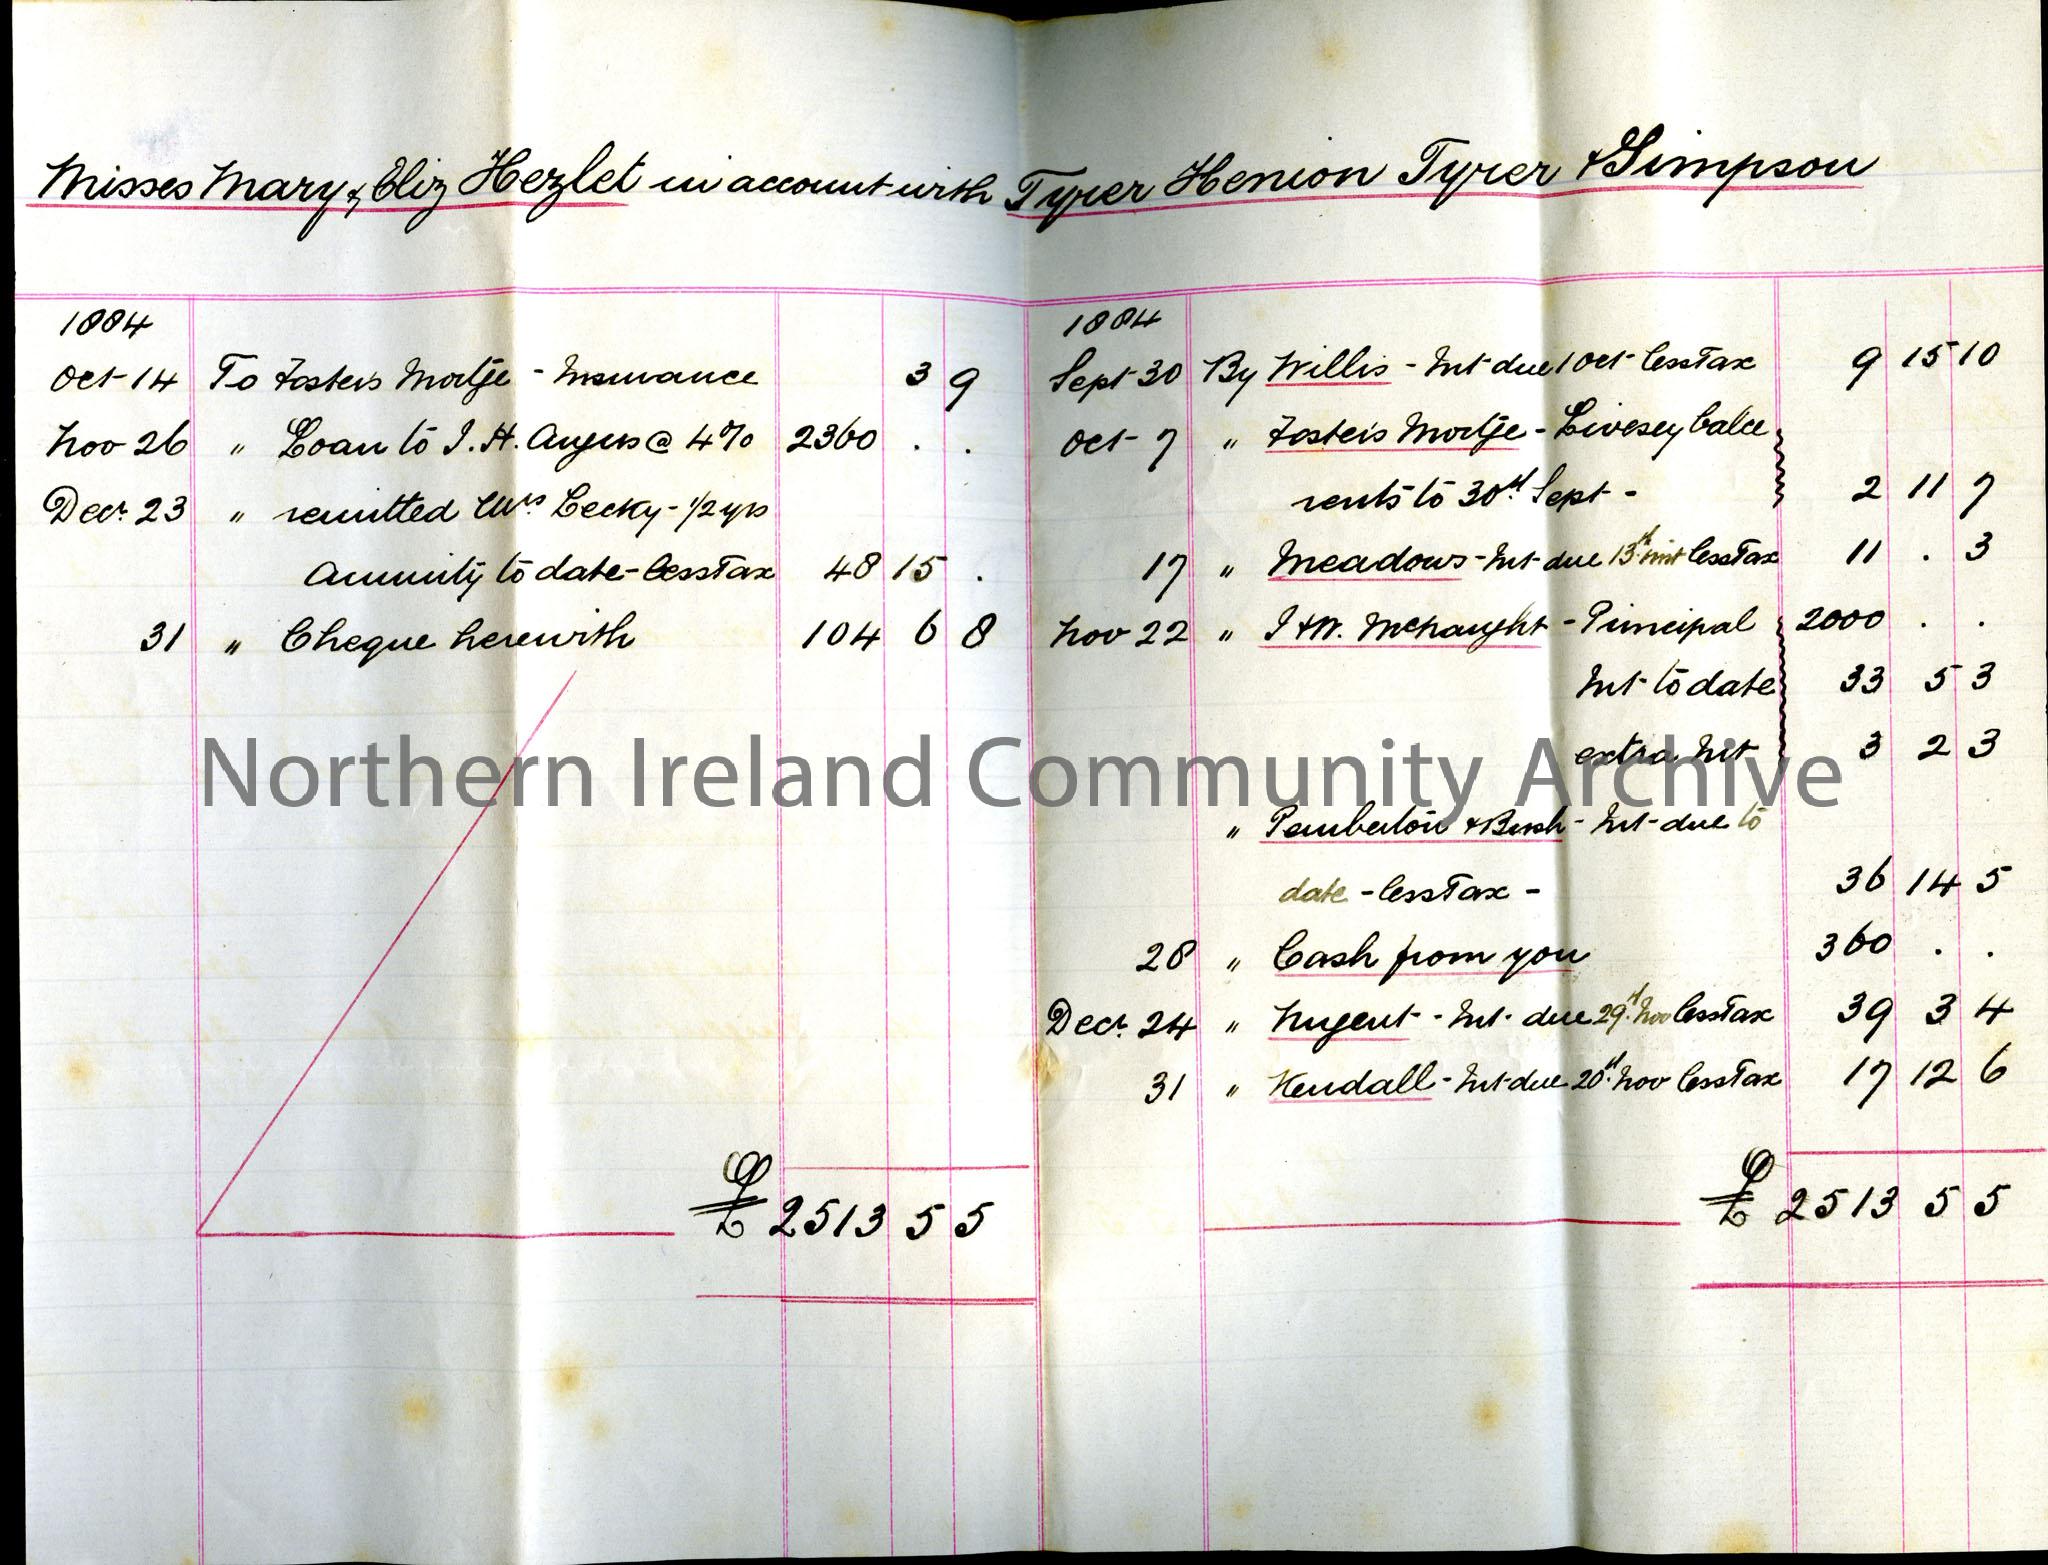 Misses Mary & Eliz Hezlet in account with Tyrer Henion Tyrer & Simpson
1884
Oct 14 To Fosters Mortge - Insurance 3 9
Nov 26 " Loan to J. H. Angus @ 4% 2360 . .
Decr. 23 " remitted Mrs Lecky - 1/2 yrs
Annuity to date - less Tax 48 15 .
31 " Cheque herewith 104 6 8
£ 2513 5 5
1884
Sept 30 By Willis - Int due 1 Oct less Tax 9 15 10
Oct 7 " Fosters Mortge - Livesey balce
rents to 30th Sept - 2 11 7
17 " Meadows - Int due 13th inst less Tax 11 . 3
Nov 22 " J & W. McNaught - Principal 2000 . .
Int to date 33 5 3
extra Int 3 2 3
" Pemberton & Bush - Int due to
date - less Tax - 36 14 5
28 " Cash from you 360 . .
Decr. 24 " Nugent - Int due 29th Nov less Tax 39 3 4
31 " Kendall - Int due 20th Nov less Tax 17 12 6
£ 2513 5 5
Northern Ireland Community Archive